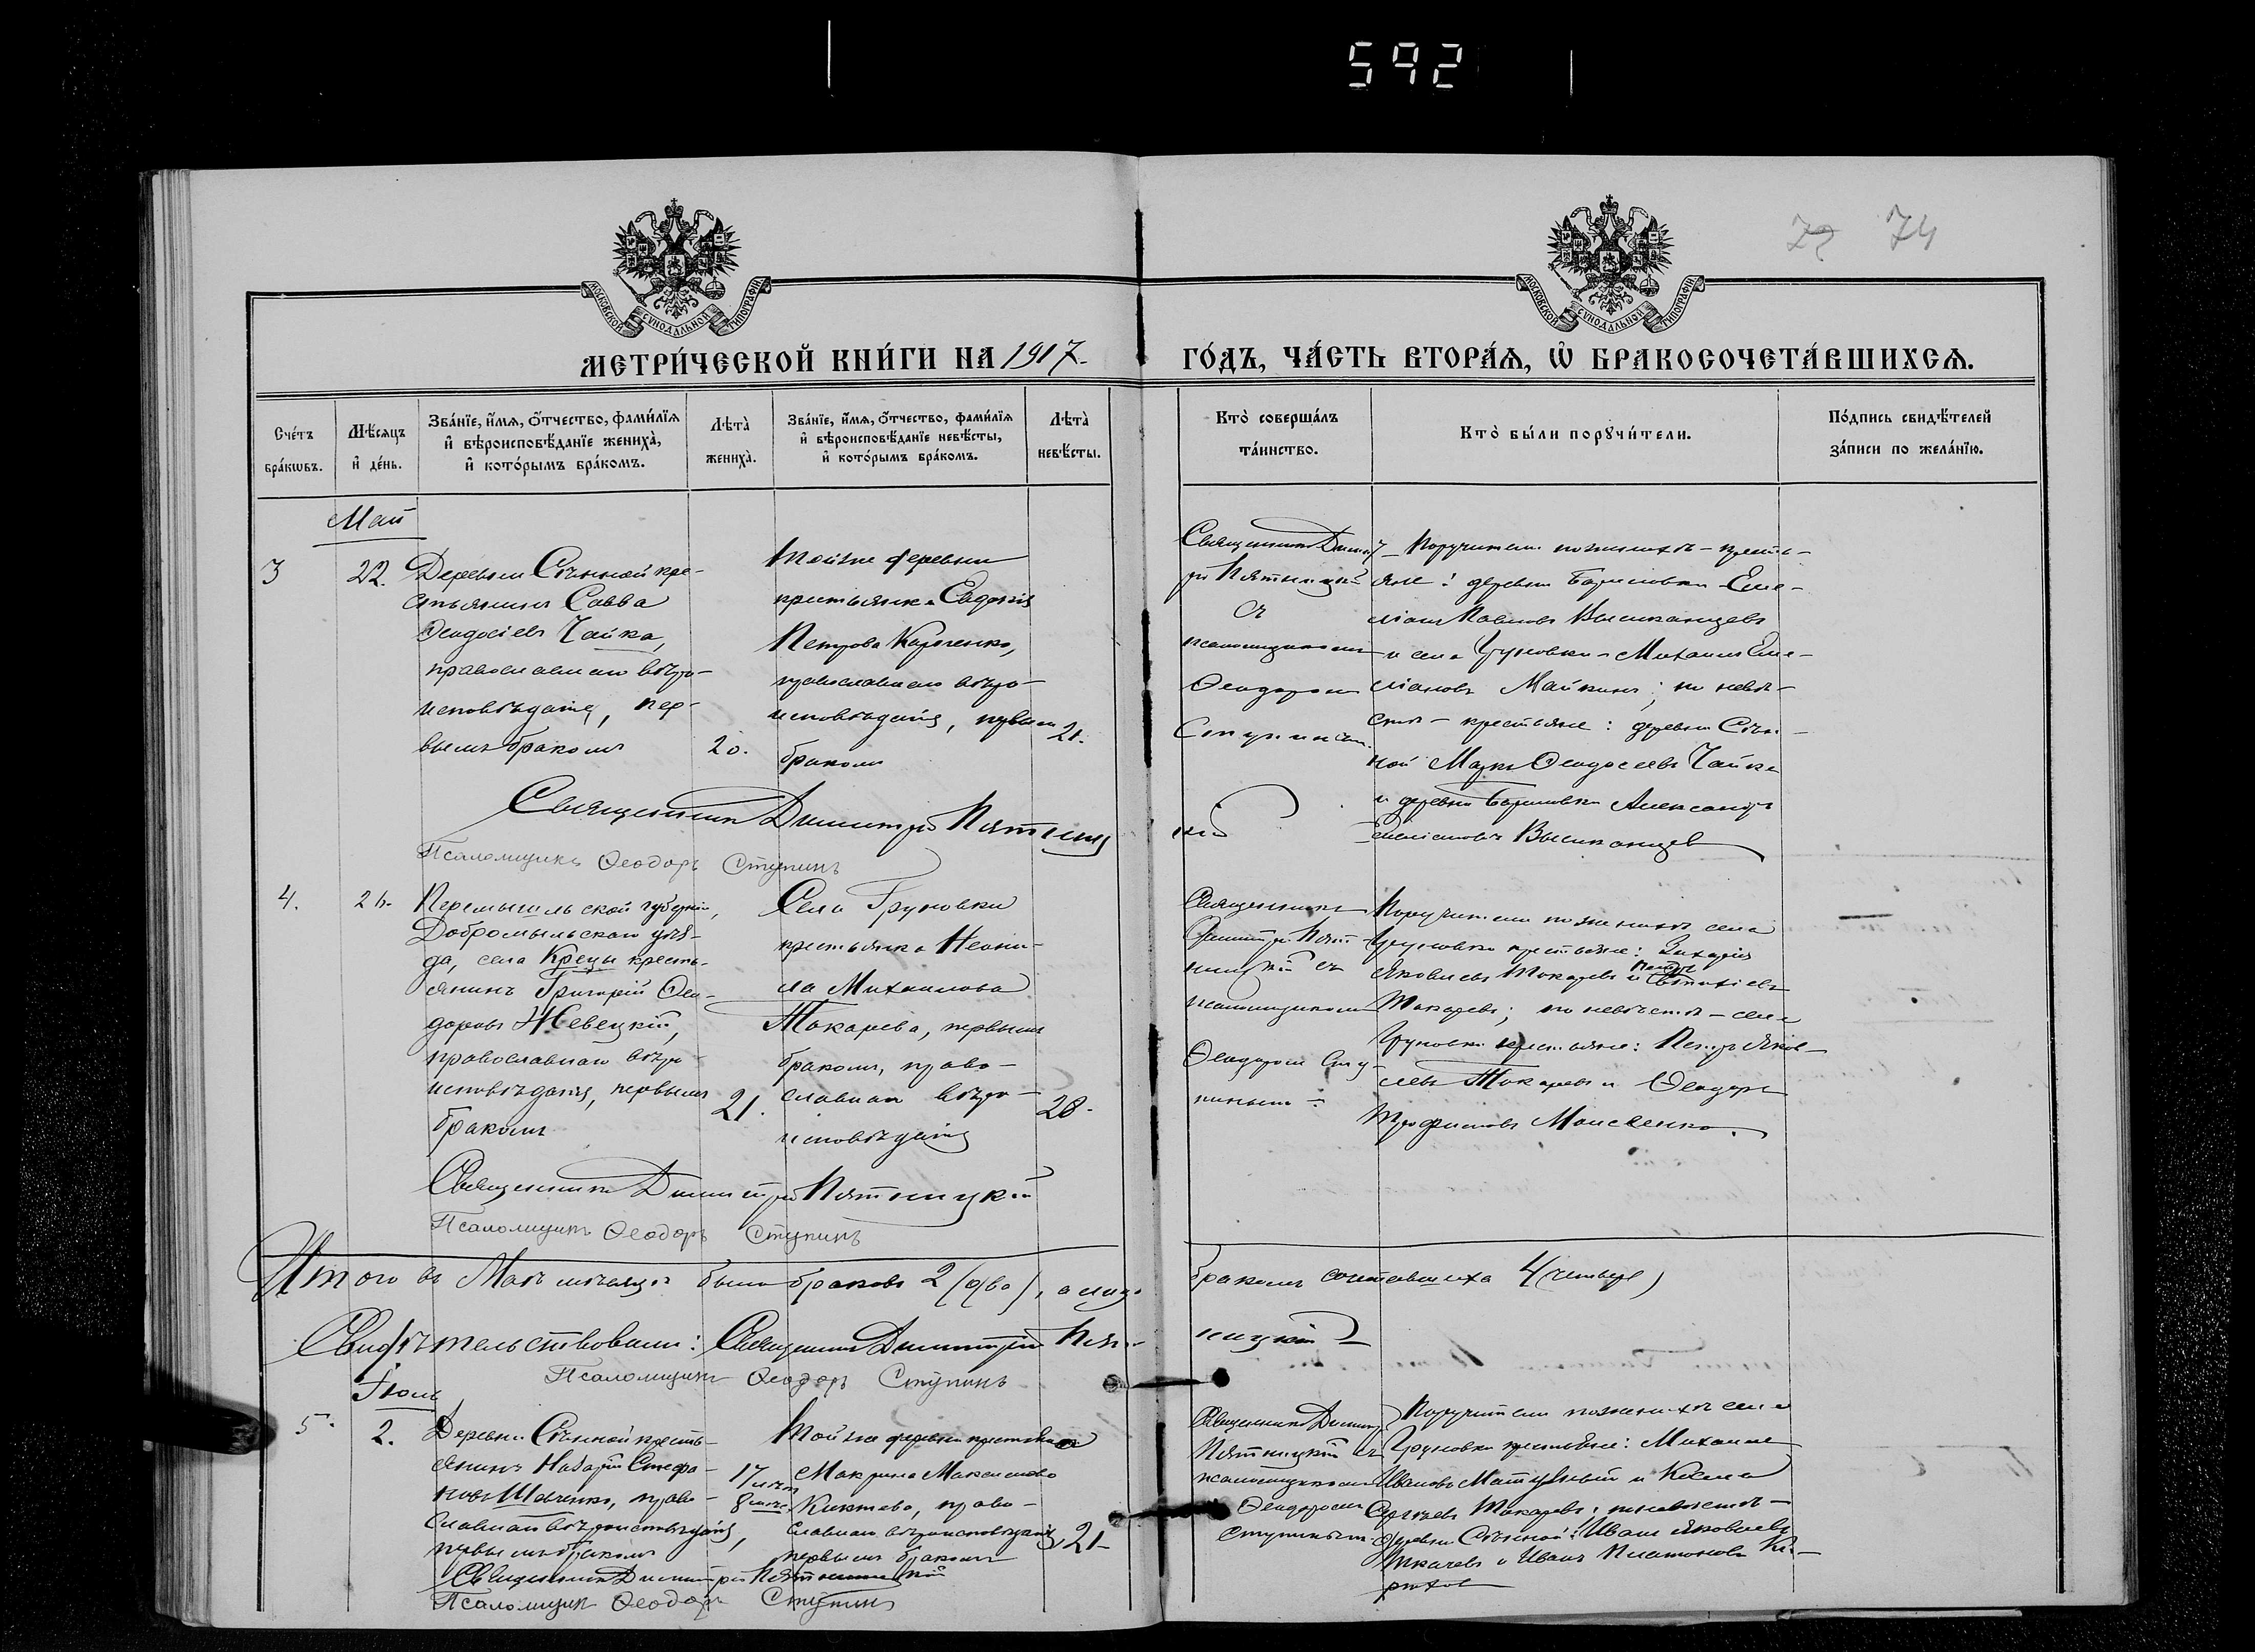 592
72 74
МОСКОВСКОЙ СУНОДАЛЬНОЙ ТИПОГРАФІИ
МОСКОВСКОЙ СУНОДАЛЬНОЙ ТИПОГРАФІИ
МЕТРИ́ЧЕСКОЙ КНИ́ГИ НА 1917 ГО́ДЪ, ЧА́СТЬ ВТОРА́Я, Ѡ БРАКОСОЧЕТА́ВШИХСЯ.
Сче́тъ бра́кѡвъ.
Мѣ́сяцъ и де́нь.
Зва́нїе, и́мя, о́тчество, фами́лїя
и вѣроисповѣ́данїе жениха̀,
и кото́рымъ бра́комъ.
Лѣта̀ жениха̀.
Зва́нїе, и́мя, о́тчество, фами́лїя
и вѣроисповѣ́данїе невѣ́сты,
и кото́рымъ бра́комъ.
Лѣта̀ невѣ́сты.
Кто̀ соверша́лъ
та́инство.
Кто̀ бы́ли порꙋчи́тели.
По́дпись свидѣ́телей
за́писи по жела́нїю.
Май
3
22.
Деревни Сѣнной кре-
стьянинъ Савва
Ѳеодосіевъ Чайка,
православнаго вѣро-
исповѣданія, пер-
вымъ бракомъ
20.
Той же деревни
крестьянка Евдокія
Петрова
православнаго вѣро-
исповѣданія, первымъ
бракомъ
21.
Священникъ Димит-
рій Пятницкій
съ
псаломщикомъ
Ѳеодоромъ
Ступинымъ.
Поручители по женихѣ - кресть-
яне: деревни Борисовки Еме-
ліанъ Павловъ
и села Груновки - Михаилъ Еме-
ліановъ Майкинъ; по невѣ-
стѣ - крестьяне: деревни Сѣн-
ной Маркъ Ѳеодосіевъ Чайка
и деревни Борисовки Александръ
Емеліановъ
Священникъ Димитрій Пятницкій
Псаломщикъ Ѳеодоръ Ступинъ
4.
26.
Перемышльской губерніи,
Добромыльскаго уѣз-
да, села Крецы кресть-
янинъ Григорій Ѳео-
доровъ Жевецкій,
православнаго вѣро-
исповѣданія, первымъ
бракомъ
21.
Села Груновки
крестьянка Неони-
ла Михаилова
Токарева, первымъ
бракомъ, право-
славнаго вѣро-
исповѣданія
28.
Священникъ
Димитрій Пят-
ницкій съ
псаломщикомъ
Ѳеодоромъ Сту-
пинымъ
Поручители по женихѣ села
Груновки крестьяне: Захарія
Яковлевъ Токаревъ и
Токаревъ; по невѣстѣ - села
Груновки крестьяне: Петръ Яков-
левъ Токаревъ и Ѳеодоръ
Трофимовъ Моисеенко.
Священникъ Димитрій Пятницкій
Псаломщикъ Ѳеодоръ Ступинъ
Итого въ Маѣ мѣсяцѣ было браковъ 2 (два), а лицъ бракомъ сочетавшихся 4 (четыре)
Свидѣтельствовали: Священникъ Димитрій Пятницкій
Псаломщикъ Ѳеодоръ Ступинъ
Іюль
5.
2.
Деревни Сѣнной кресть-
янинъ Назарій Стефа-
новъ Шевченко, право-
славнаго вѣроисповѣданія,
первымъ бракомъ
17 лѣтъ
8 мѣс.
Той же деревни крестьянка
Макрина Максимова
право-
славнаго вѣроисповѣданія,
первымъ бракомъ
21
Священникъ Димитр.
Пятницкій съ
псаломщикомъ
Ѳеодоромъ
Ступинымъ.
Поручители по женихѣ села
Груновки крестьяне: Михаилъ
Ивановъ и Косма
Сергѣевъ Токаревъ; по невѣстѣ -
деревни Сѣнной: Иванъ Яковлевъ
Ткачевъ и Иванъ Платоновъ
Священникъ Димитрій Пятницкій
Псаломщикъ Ѳеодоръ Ступинъ